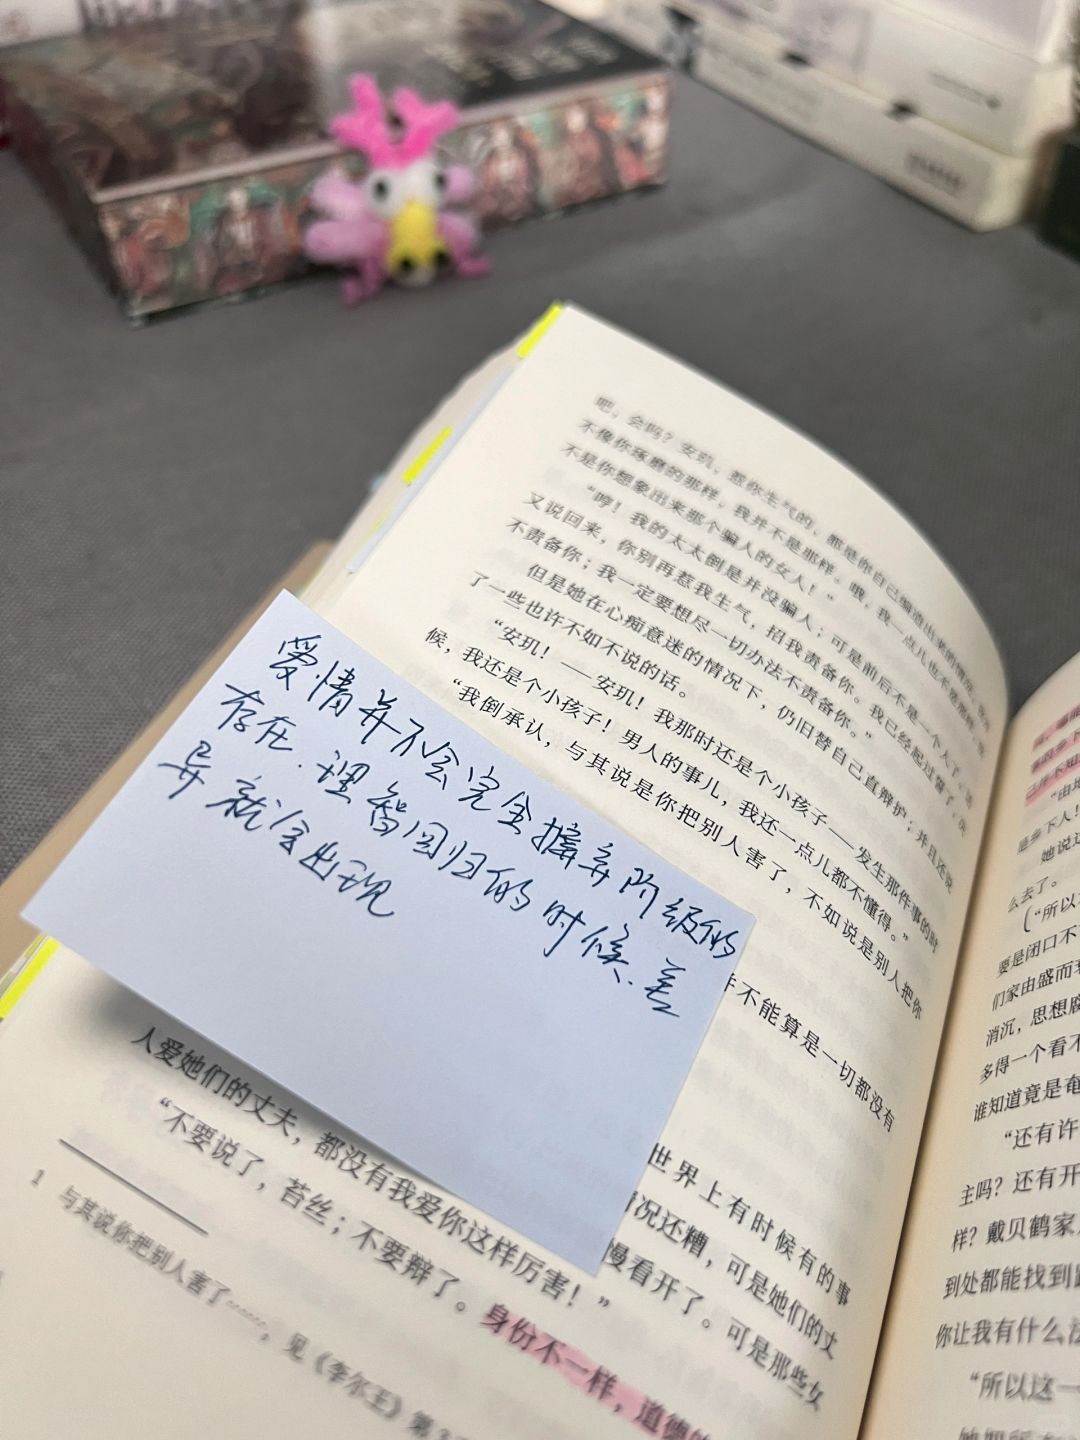 吧，会吗？安玑，惹你生气的，都是你自己编造出来的情况，我
不像你琢磨的那样，我并不是那样。哦，我一点儿也不是那样，
不是你想象出来那个骗人的女人！”
“哼！我的太太倒是并没骗人；可是前后不是一个人了。
又说回来，你别再惹我生气，招我责备你。我已经起过誓了，决
不责备你；我一定要想尽一切办法不责备你。”
但是她在心痴意迷的情况下，仍旧替自己直辩护；并且还说
了一些也许不如不说的话。
“安玑！——安玑！我那时还是个小孩子——发生那件事的时
候，我还是个小孩子！男人的事儿，我还一点儿都不懂得。”
“我倒承认，与其说是你把别人害了，不如说是别人把你
爱情并不会完全摒弃阶级的
存在.理智回归的时候.差
异就会出现
并不能算是一切都没有
世界上有时候有的事
情况还糟，可是她们的丈
慢看开了。可是那些女
人爱她们的丈夫，都没有我爱你这样厉害！”
“不要说了，苔丝；不要辩了。身份不一样，道德的
1 与其说你把别人害了……，见《李尔王》第3
己并不知
“由
是乡下人！
她说
么去了。
（“所以
要是闭口不
们家由盛而
消沉，思想
多得一个看不
谁知道竟是奄
“还有许
主吗？还有开
样？戴贝鹤家
到处都能找到
你让我有什么
“所以这一